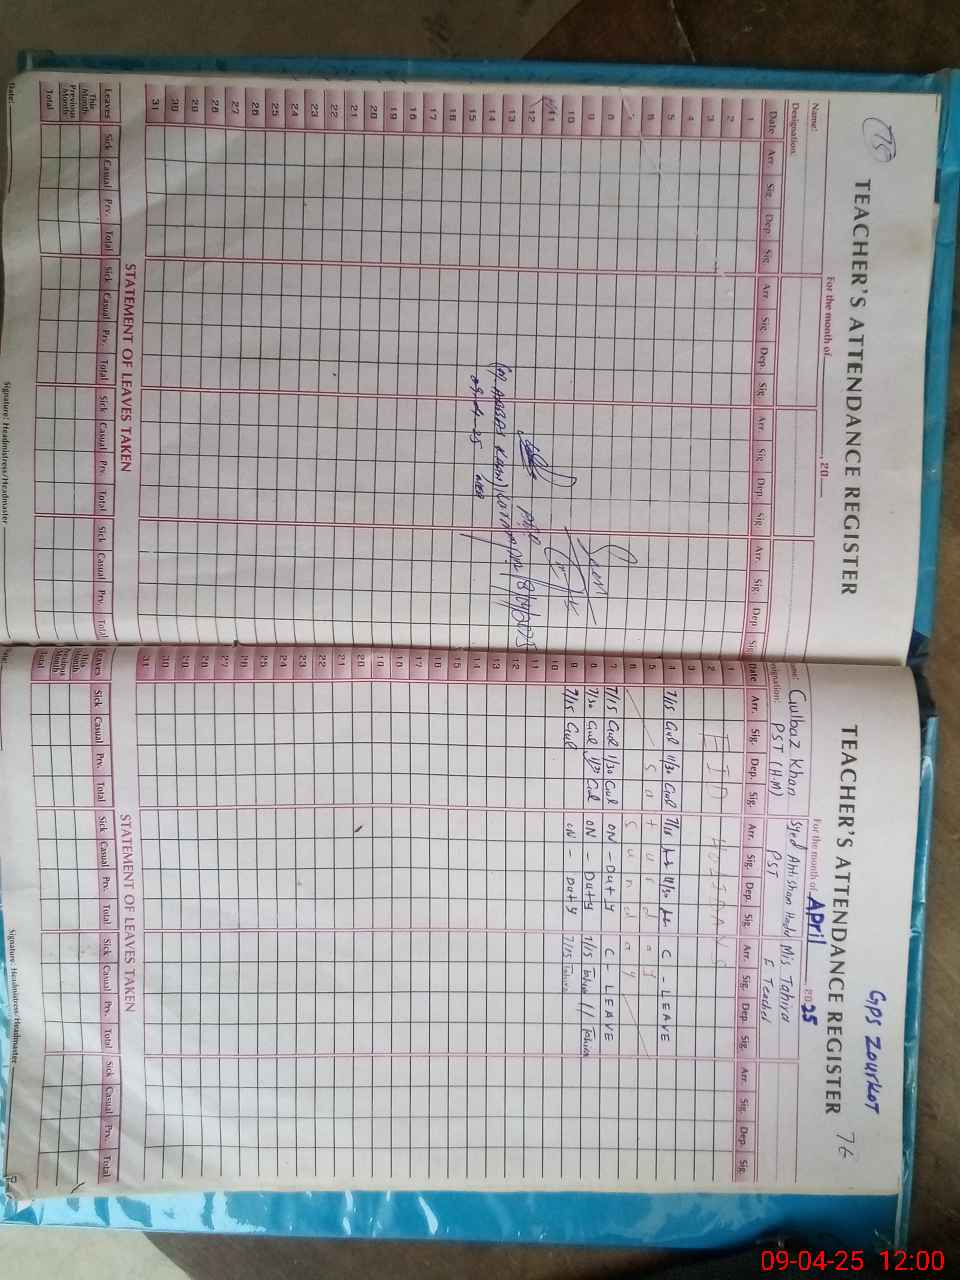 TEACHER'S ATTENDANCE REGISTER
For the month of 20
Name:
Designation:
Date Arr. Sig. Dep. Sig. Arr. Sig. Dep. Sig. Arr. Sig. Dep. Sig. Arr. Sig. Dep.
1
2
3
4
5
6
7
8
9
10
11
12
13
14
15
16
17
18
19
20
21
22
23
24
25
26
27
28
29
30
31
09-4-25
STATEMENT OF LEAVES TAKEN
Leaves Sick Casual Prv. Total Sick Casual Prv. Total Sick Casual Prv. Total Sick Casual Prv. Total
This Month
Previous Month
Total
Date:
Signature: Headmistress/Headmaster
GPS ZOURKOT
TEACHER'S ATTENDANCE REGISTER 76
For the month of APril 2025
Gulbaz Khan Syed Mis Tahira
PST (H.M) PST E Teacher
Date Arr. Sig. Dep. Sig. Arr. Sig. Dep. Sig. Arr. Sig. Dep. Sig. Arr. Sig. Dep. Sig.
1
2 EID HOLIDAY
3
4 7/15 Gul 11/30 Gul 7/15 11/30 C - LEAVE
5 Saturday
6 Sunday
7 7/15 Gul 1/30 Gul ON - Duty C - LEAVE
8 7/30 Gul 1/30 Gul ON - Duty 7/15 Tahira 11 Tahira
9 7/15 Gul ON - Duty 7/15 Tahira
10
11
12
13
14
15
16
17
18
19
20
21
22
23
24
25
26
27
28
29
30
31
STATEMENT OF LEAVES TAKEN
Leaves Sick Casual Prv. Total Sick Casual Prv. Total Sick Casual Prv. Total Sick Casual Prv. Total
This Month
Previous Month
Total
Signature: Headmistress/Headmaster
09-04-25 12:00